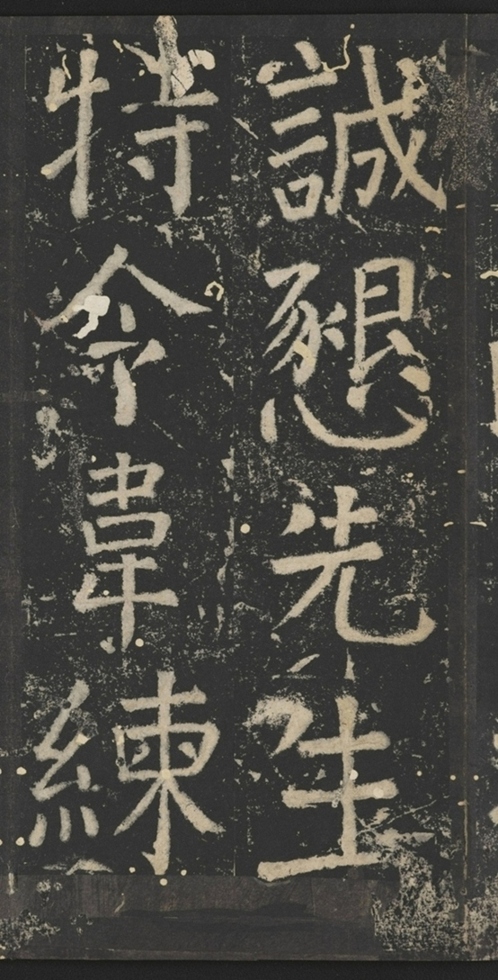 誠懇先生
特令韋練